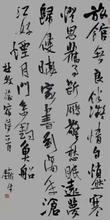 旅館無良伴凝情自悄然寒
燈思舊事斷雁警愁眠遠夢
歸侵曉家書到隔年滄
江好煙月門繫釣魚船
杜牧旅宿詩一首